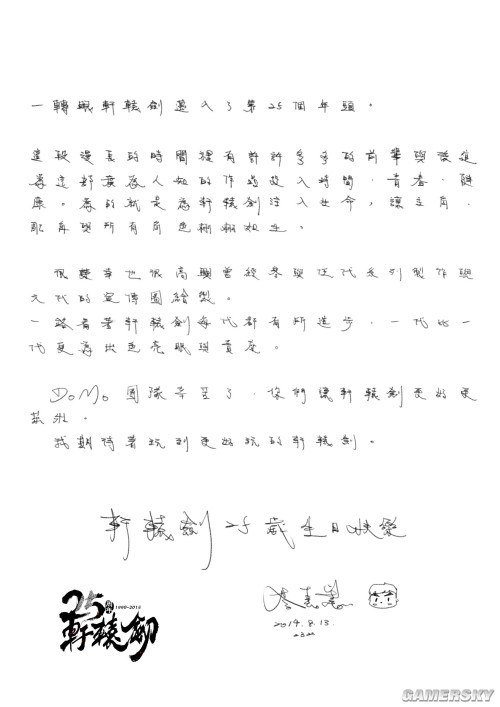 一轉眼軒轅劍邁入了第25個年頭。
這段漫長的時間裡有許許多多的前輩與後進
專注都廣為人知的作品投入時間、青春、健
康。為的就是為軒轅劍注入生命，讓主角、
配角與所有角色栩栩如生。
很榮幸也很高興曾經參與近代系列製作與
大代的宣傳圖繪製。
一路看著軒轅劍每代都有所進步，一代比一
代更為出色亮眼與責任。
DoMo團隊辛苦了，你們讓軒轅劍更好更
茁壯。
我期待著玩到更好玩的軒轅劍。
軒轅劍25歲生日快樂
2014.8.13.
25周年 1990-2015
軒轅劍
GAMERSKY